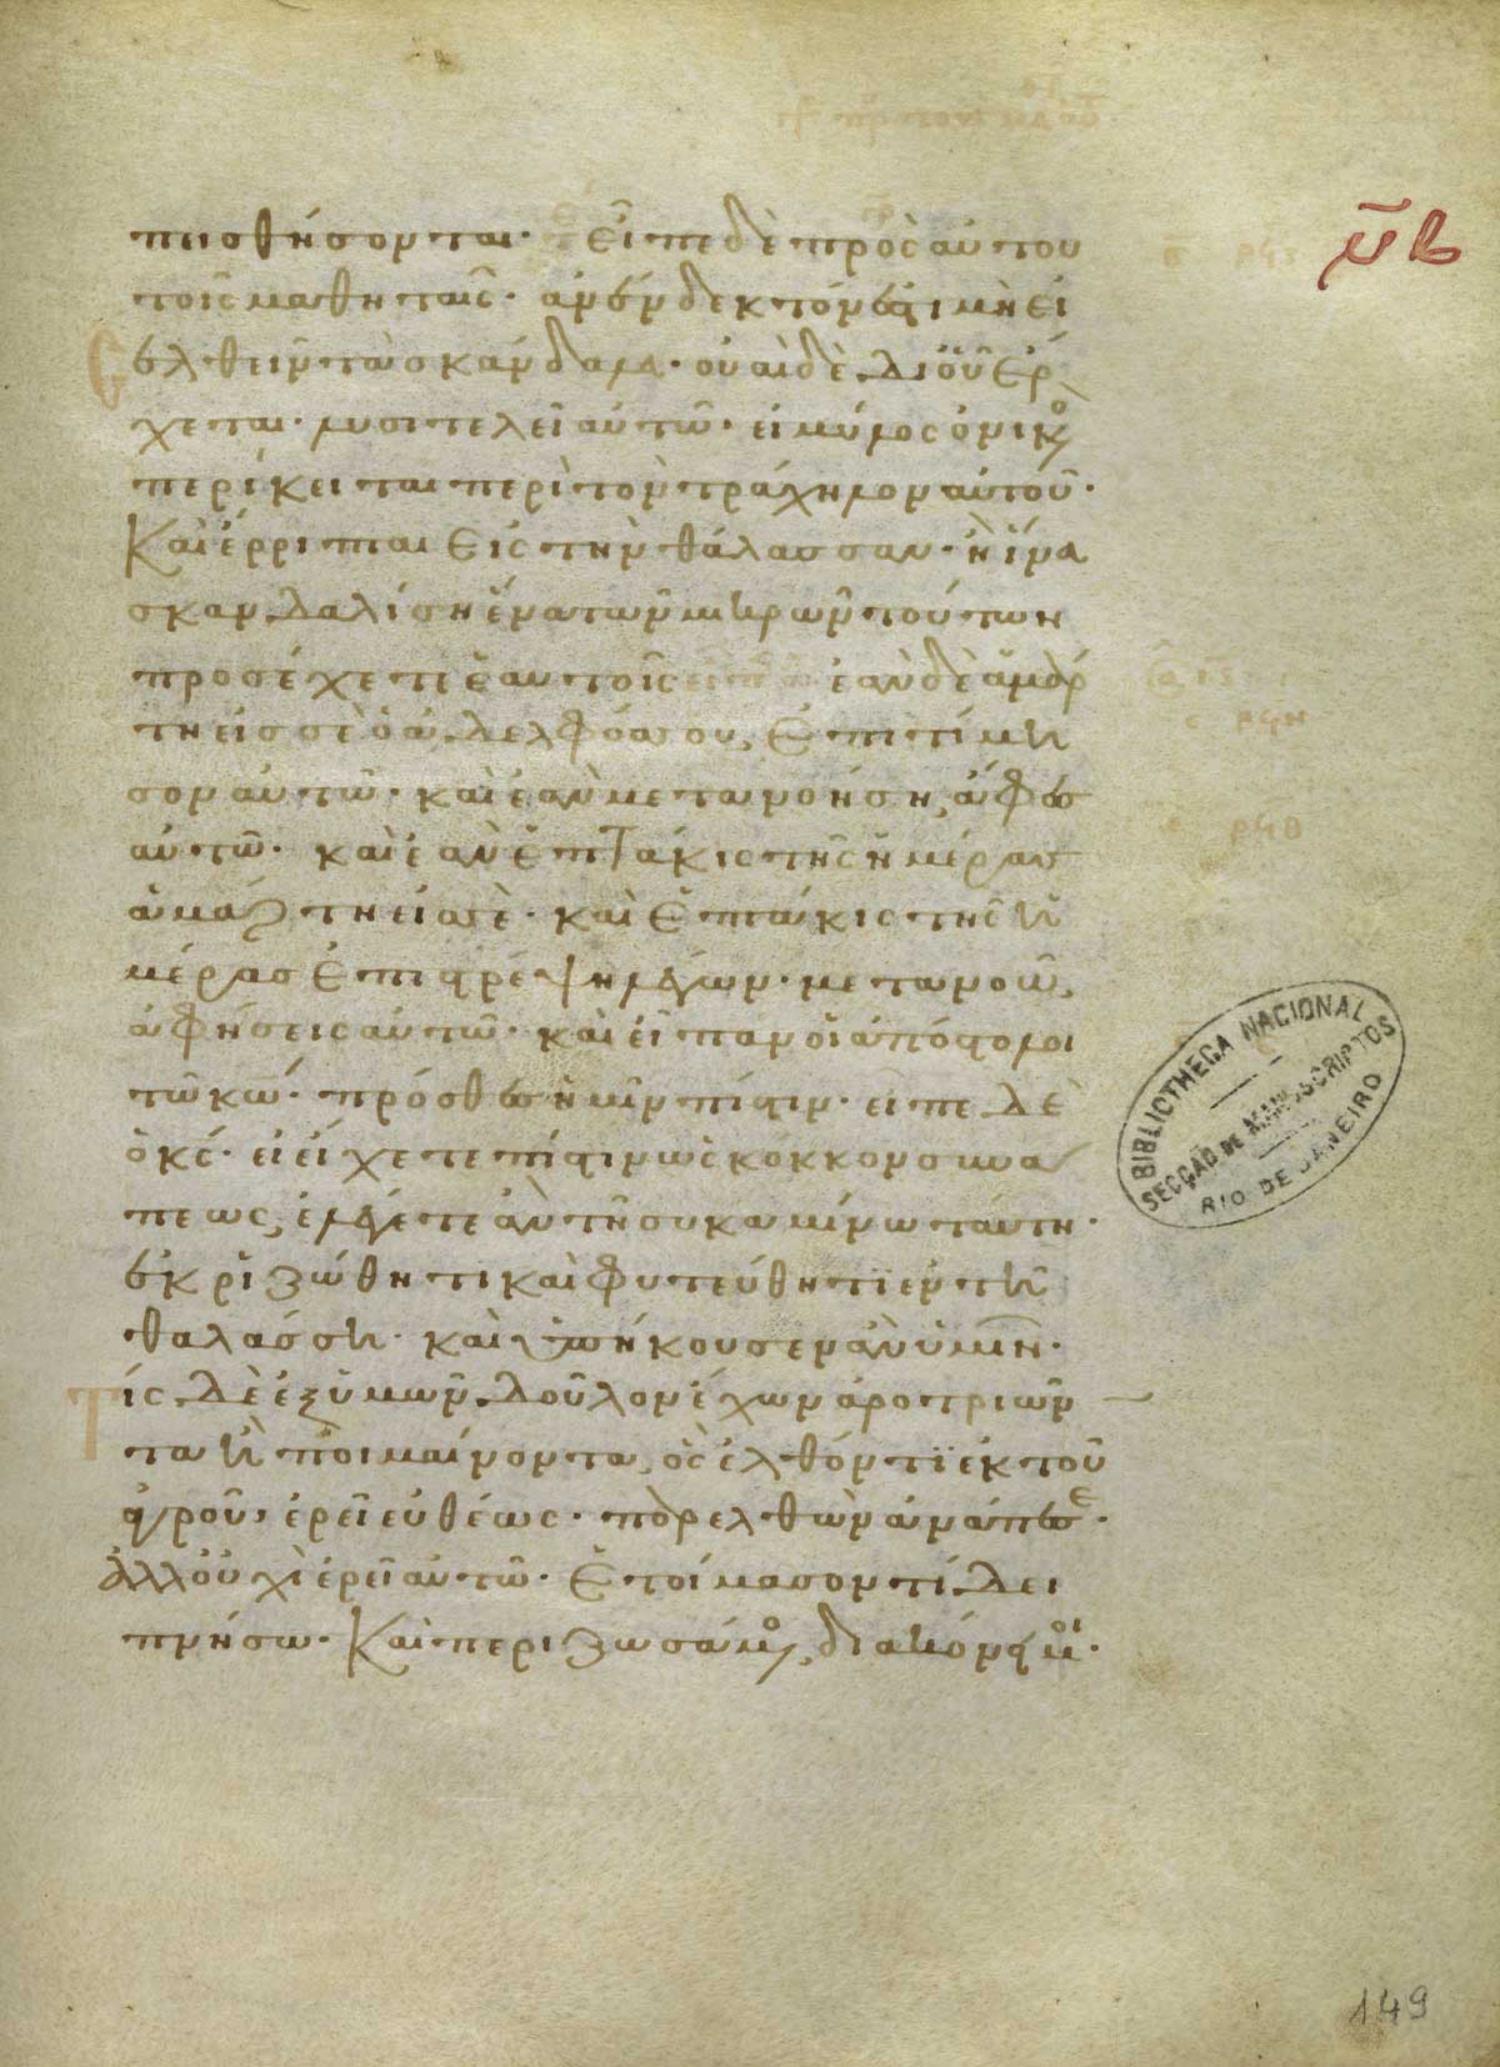 πεισθήσονται. Εἶπε δὲ πρὸς αὐτου
τοῖς μαθηταῖς. ἀνένδεκτόν ἐστι μὴ εἰ
ελθεῖν τὰ σκάνδαλα. οὐαὶ δὲ δι' οὗ ἔρ
χεται. λυσιτελεῖ αὐτῶ. εἰ μύλος ὀνικὸ
περίκειται περὶ τὸν τράχηλον αὐτοῦ.
Καὶ ἔρριπται εἰς τὴν θάλασσαν. ἢ ἵνα
σκανδαλίση ἕνα τῶν μικρῶν τούτων
προσέχετε ἑαυτοῖς ἐὰν δὲ ἁμάρ
τη εἰς σὲ ὁ ἀδελφός σου, ἐπιτίμη
σον αὐτῶ. καὶ ἐὰν μετανοήση, ἄφες
αὐτῶ. καὶ ἐὰν ἑπτάκις τῆς ἡμέρας
ἁμάρτη εἰς σὲ. καὶ ἑπτάκις τῆς ἡ
μέρας ἐπιστρέψη λέγων. μετανοῶ,
ἀφήσεις αὐτῶ. καὶ εἶπον οἱ ἀπόστολοι
τῶ κω. πρόσθες ἡμῖν πίστιν. εἶπε δὲ
ὁ κς. εἰ εἴχετε πίστιν ὡς κόκκον σινα
πεως, ἐλέγετε ἂν τῆ συκαμίνω ταύτη.
ἐκριζώθητι καὶ φυτεύθητι ἐν τῆ
θαλάσση. καὶ ὑπήκουσεν ἂν ὑμῖν.
Τίς δὲ ἐξ ὑμῶν δοῦλον ἔχων ἀροτριῶν
τα ἢ ποιμαίνοντα, ὃς ἐλθόντι ἐκ τοῦ
ἀγροῦ, ἐρεῖ εὐθέως. παρελθὼν ἀνάπεσε.
ἀλλ' οὐχὶ ἐρεῖ αὐτῶ. ἑτοίμασον τί δει
πνήσω. Καὶ περιζωσάμενος, διακόνει μοι.
μβ
BIBLIOTHECA NACIONAL
SECÇÃO DE MANUSCRIPTOS
RIO DE JANEIRO
149